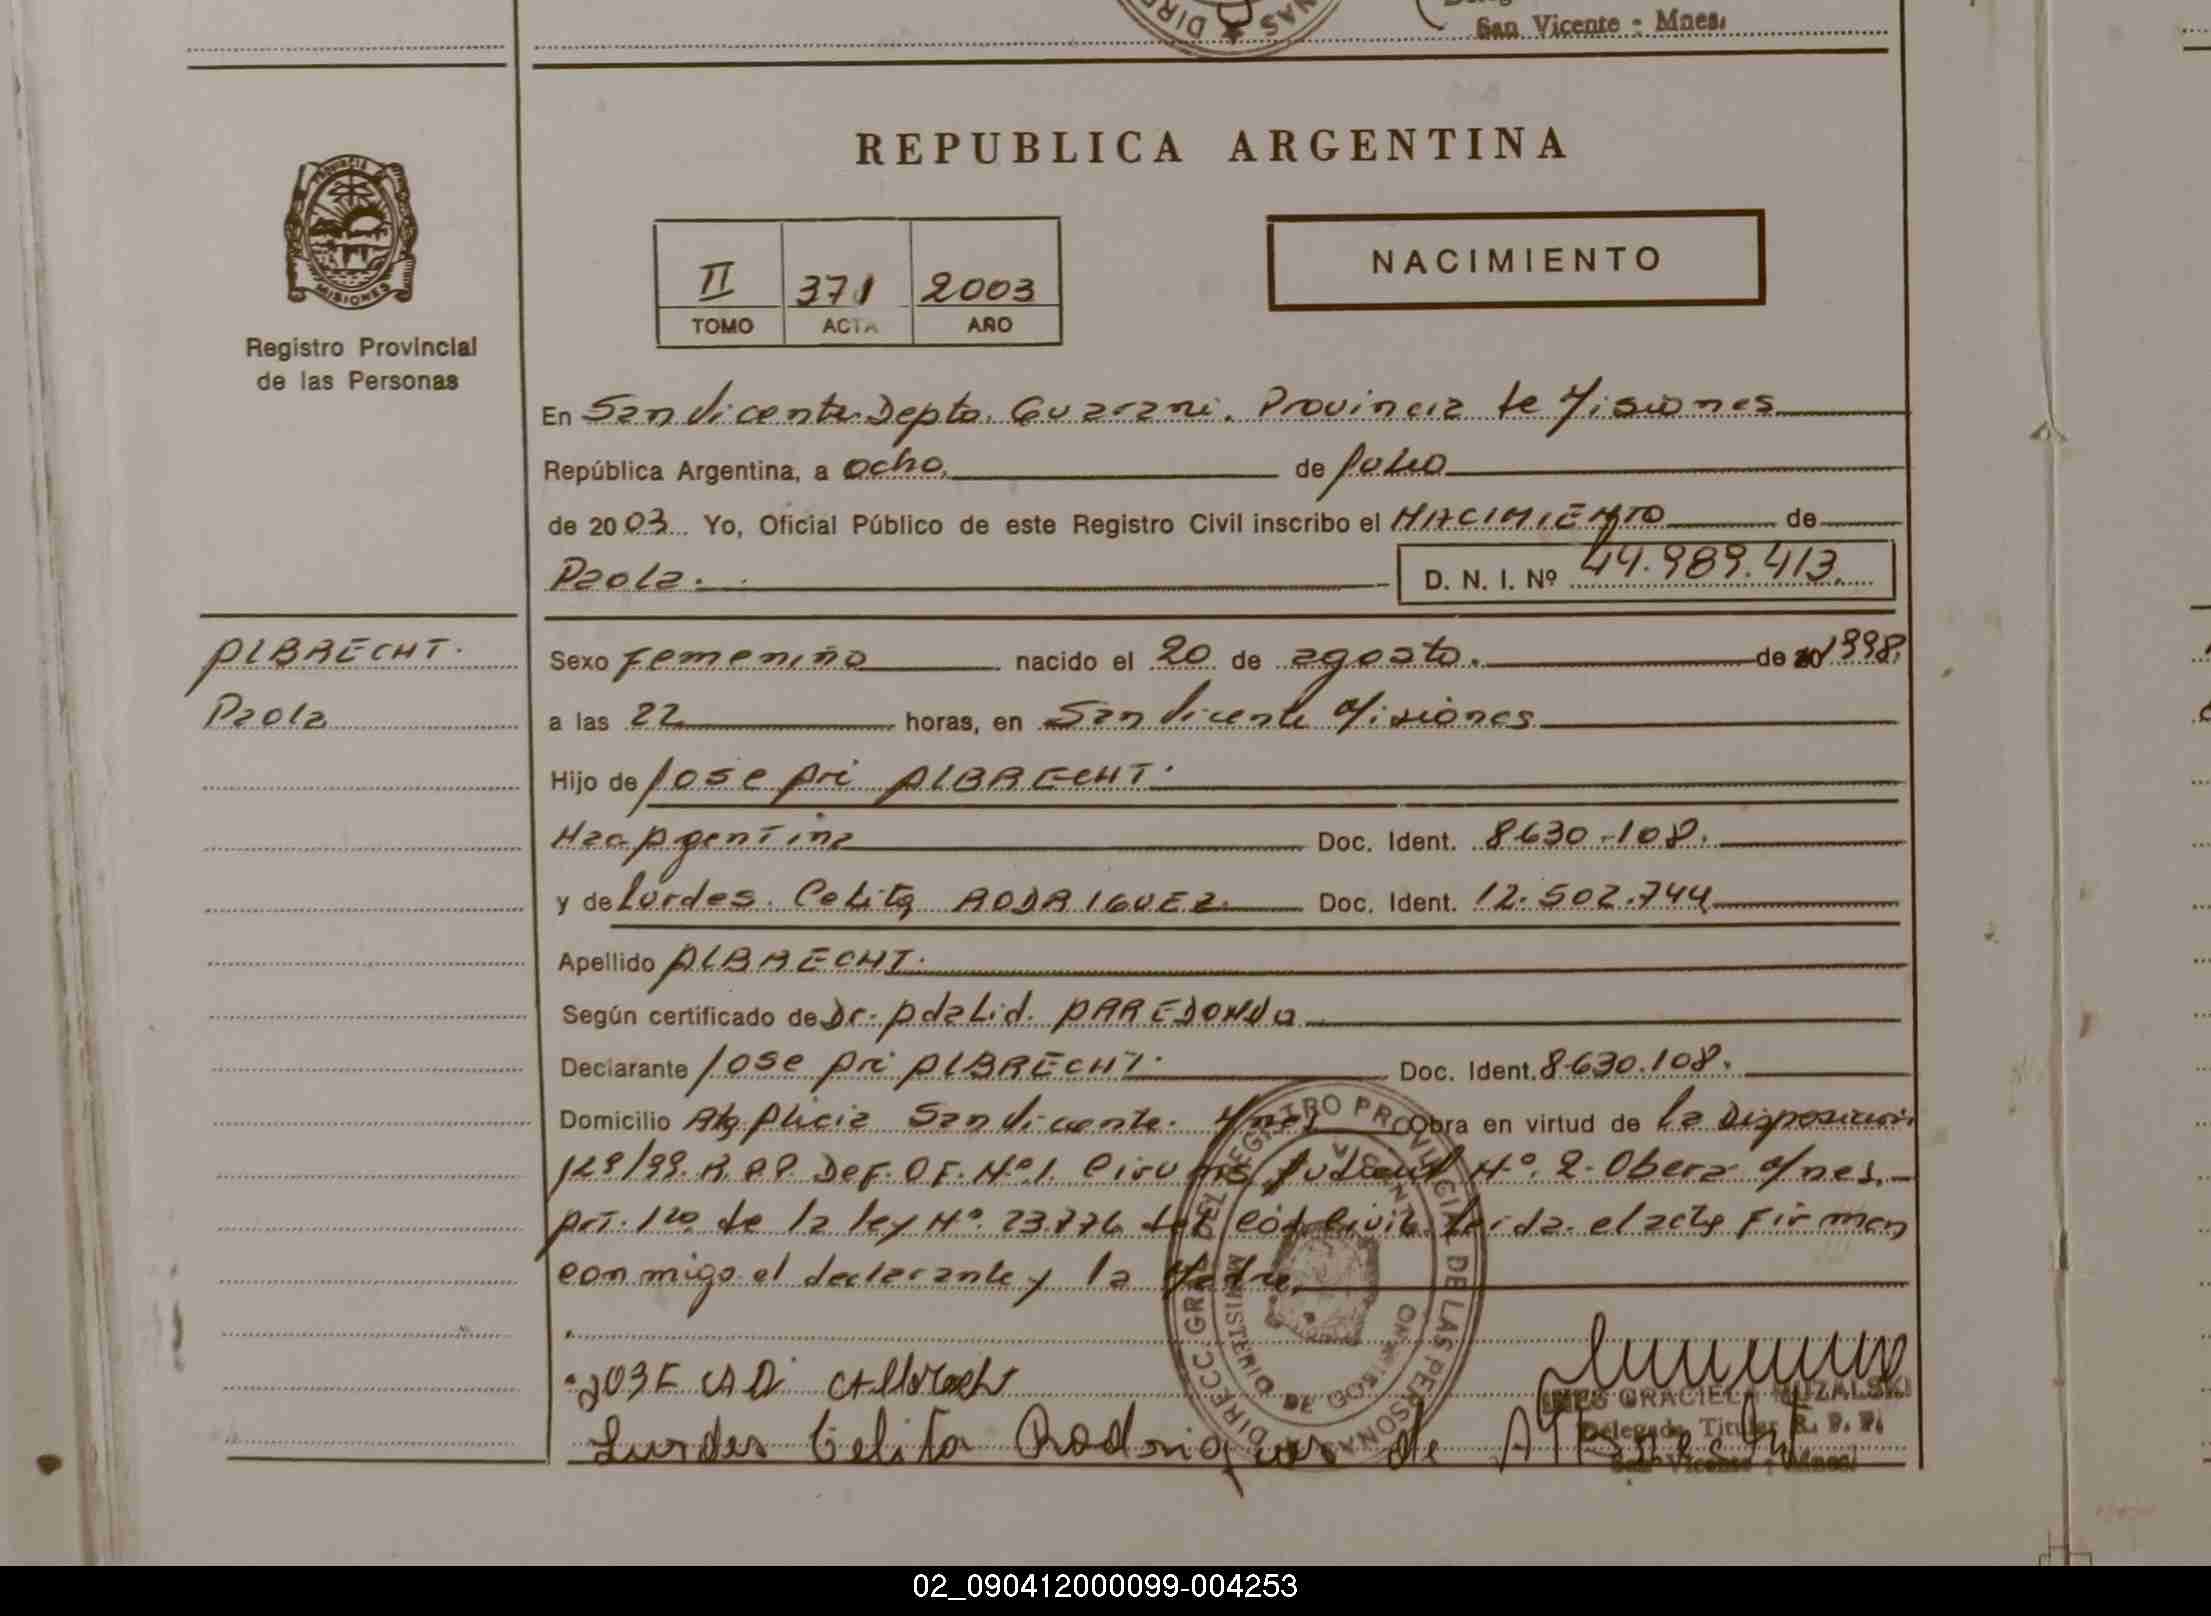 San Vicente - Mnes.
REPUBLICA ARGENTINA
PROVINCIA
MISIONES
Registro Provincial
de las Personas
II 371 2003
TOMO ACTA AÑO
NACIMIENTO
En San Vicente Depto. Guarani. Provincia de Misiones
República Argentina, a ocho de Julio
de 2003 Yo, Oficial Público de este Registro Civil inscribo el NACIMIENTO de
Paola. D. N. I. Nº 44.989.413.
ALBRECHT.
Paola
Sexo femenino nacido el 20 de agosto. de 20 1998.
a las 22 horas, en San Vicente Misiones
Hijo de Jose Ari ALBRECHT.
Nac Argentina Doc. Ident. 8630.108.
y de Lurdes. Celita RODRIGUEZ. Doc. Ident. 12.502.744
Apellido ALBRECHT.
Según certificado de Dr. Adalid. ARREDONDO
Declarante Jose Ari ALBRECHT. Doc. Ident. 8630.108.
Domicilio Alicia San Vicente. Mnes Obra en virtud de la Disposicion
129/99. R.P.P. DEF. OF. Nº.1. Circuns Judicial Nº. 2. Obera Mnes.
Art. 1º de la ley Nº. 23.776 del Cód Civil. Leida el acta Firman
conmigo el declarante y la Madre.
DIRECC GRAL DEL REGISTRO PROVINCIAL DE LAS PERSONAS
JOSE ARI ALbrecht
Lurdes Celita Rodrigues de
INES GRACIELA MUZALSKI
Delegada Titular R. P. P.
San Vicente - Mnes.
02_090412000099-004253